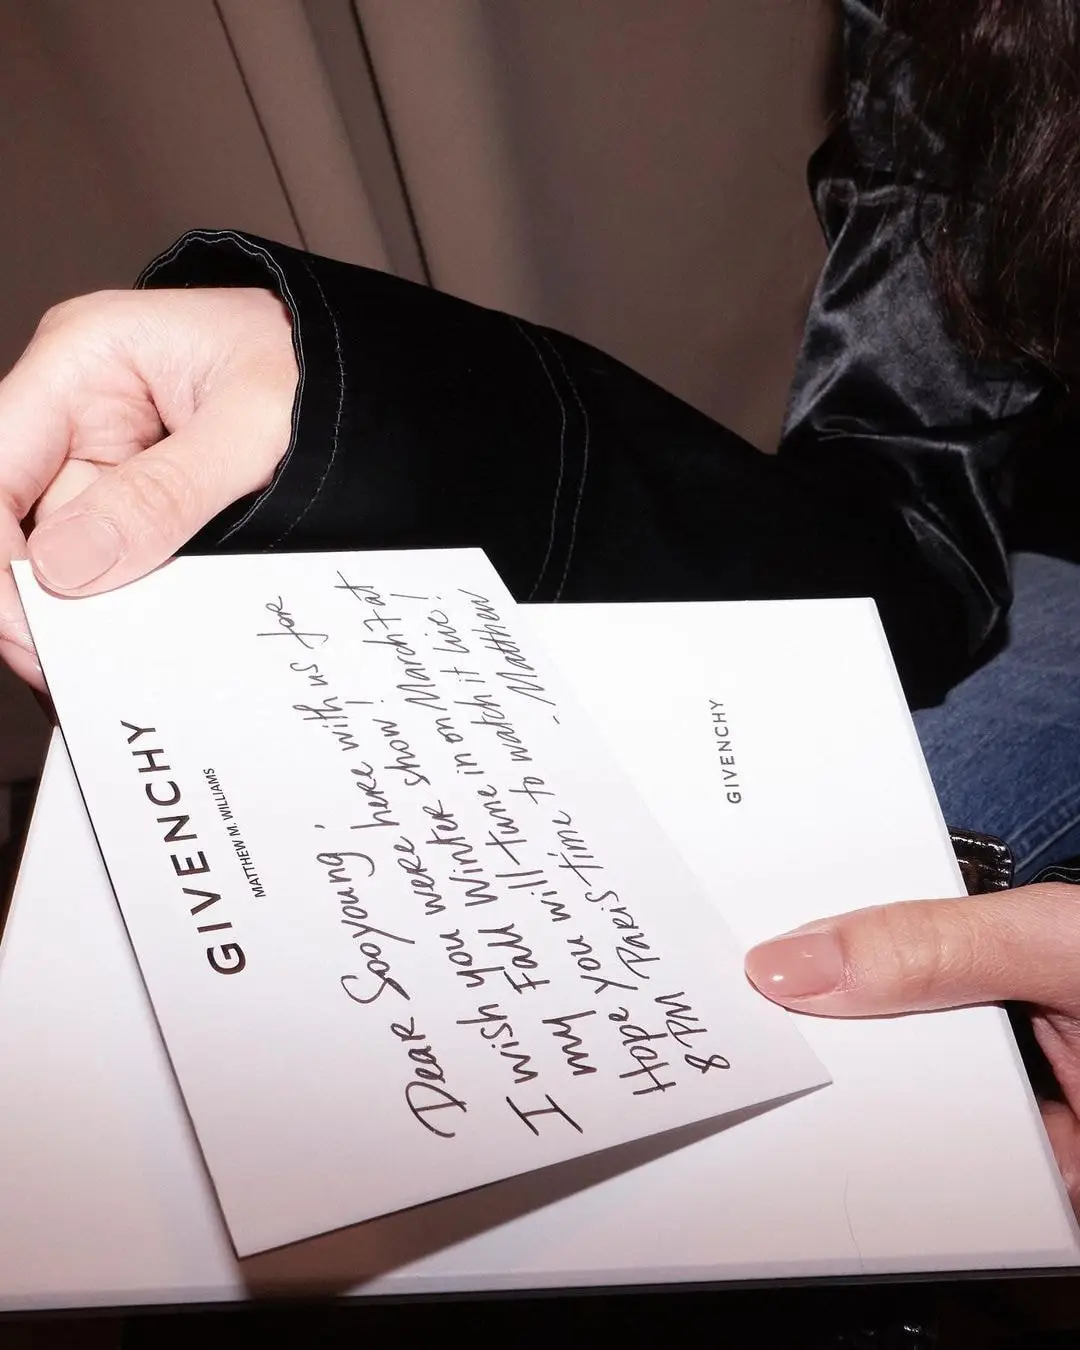 GIVENCHY
MATTHEW M. WILLIAMS
Dear Sooyoung,
I wish you were here with us for
my Fall Winter show!
Hope you will tune in on March 7 at
8 PM Paris time to watch it live!
- Matthew
GIVENCHY